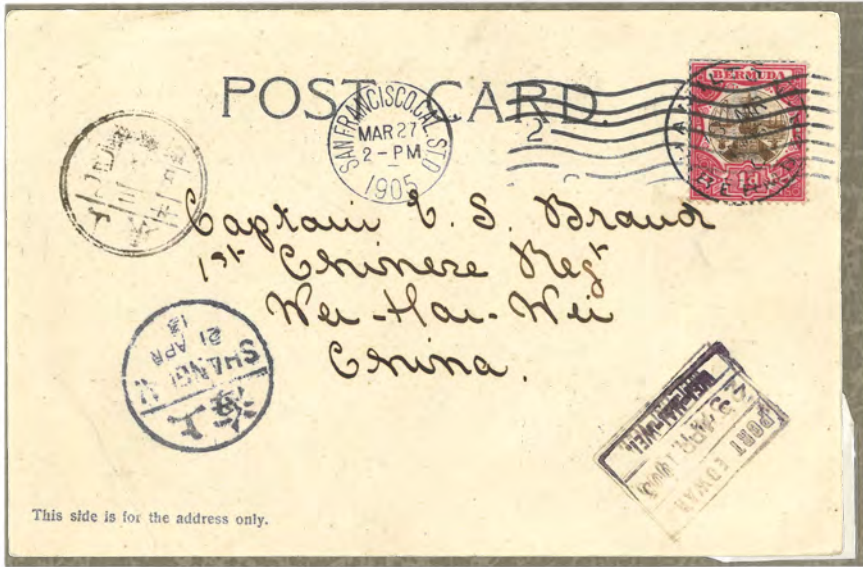 POST CARD.
SAN FRANCISCO, CAL. STA.
MAR 27
2 - PM
1905
2
BERMUDA
1d
Captain E. S. Brand
1st Chinese Regt
Wei-Hai-Wei
China.
SHANGHAI
21 APR
上海
PORT EDWARD
APR 1905
WEI-HAI-WEI
This side is for the address only.